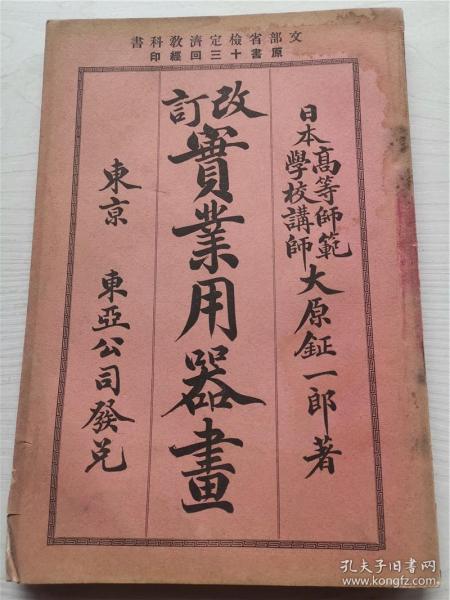 文部省檢定濟教科書
原書十三回經印
日本高等師範
學校講師
大原鉦一郎著
改訂
實業用器畫
東京 東亞公司發兌
孔夫子旧书网
www.kongfz.com